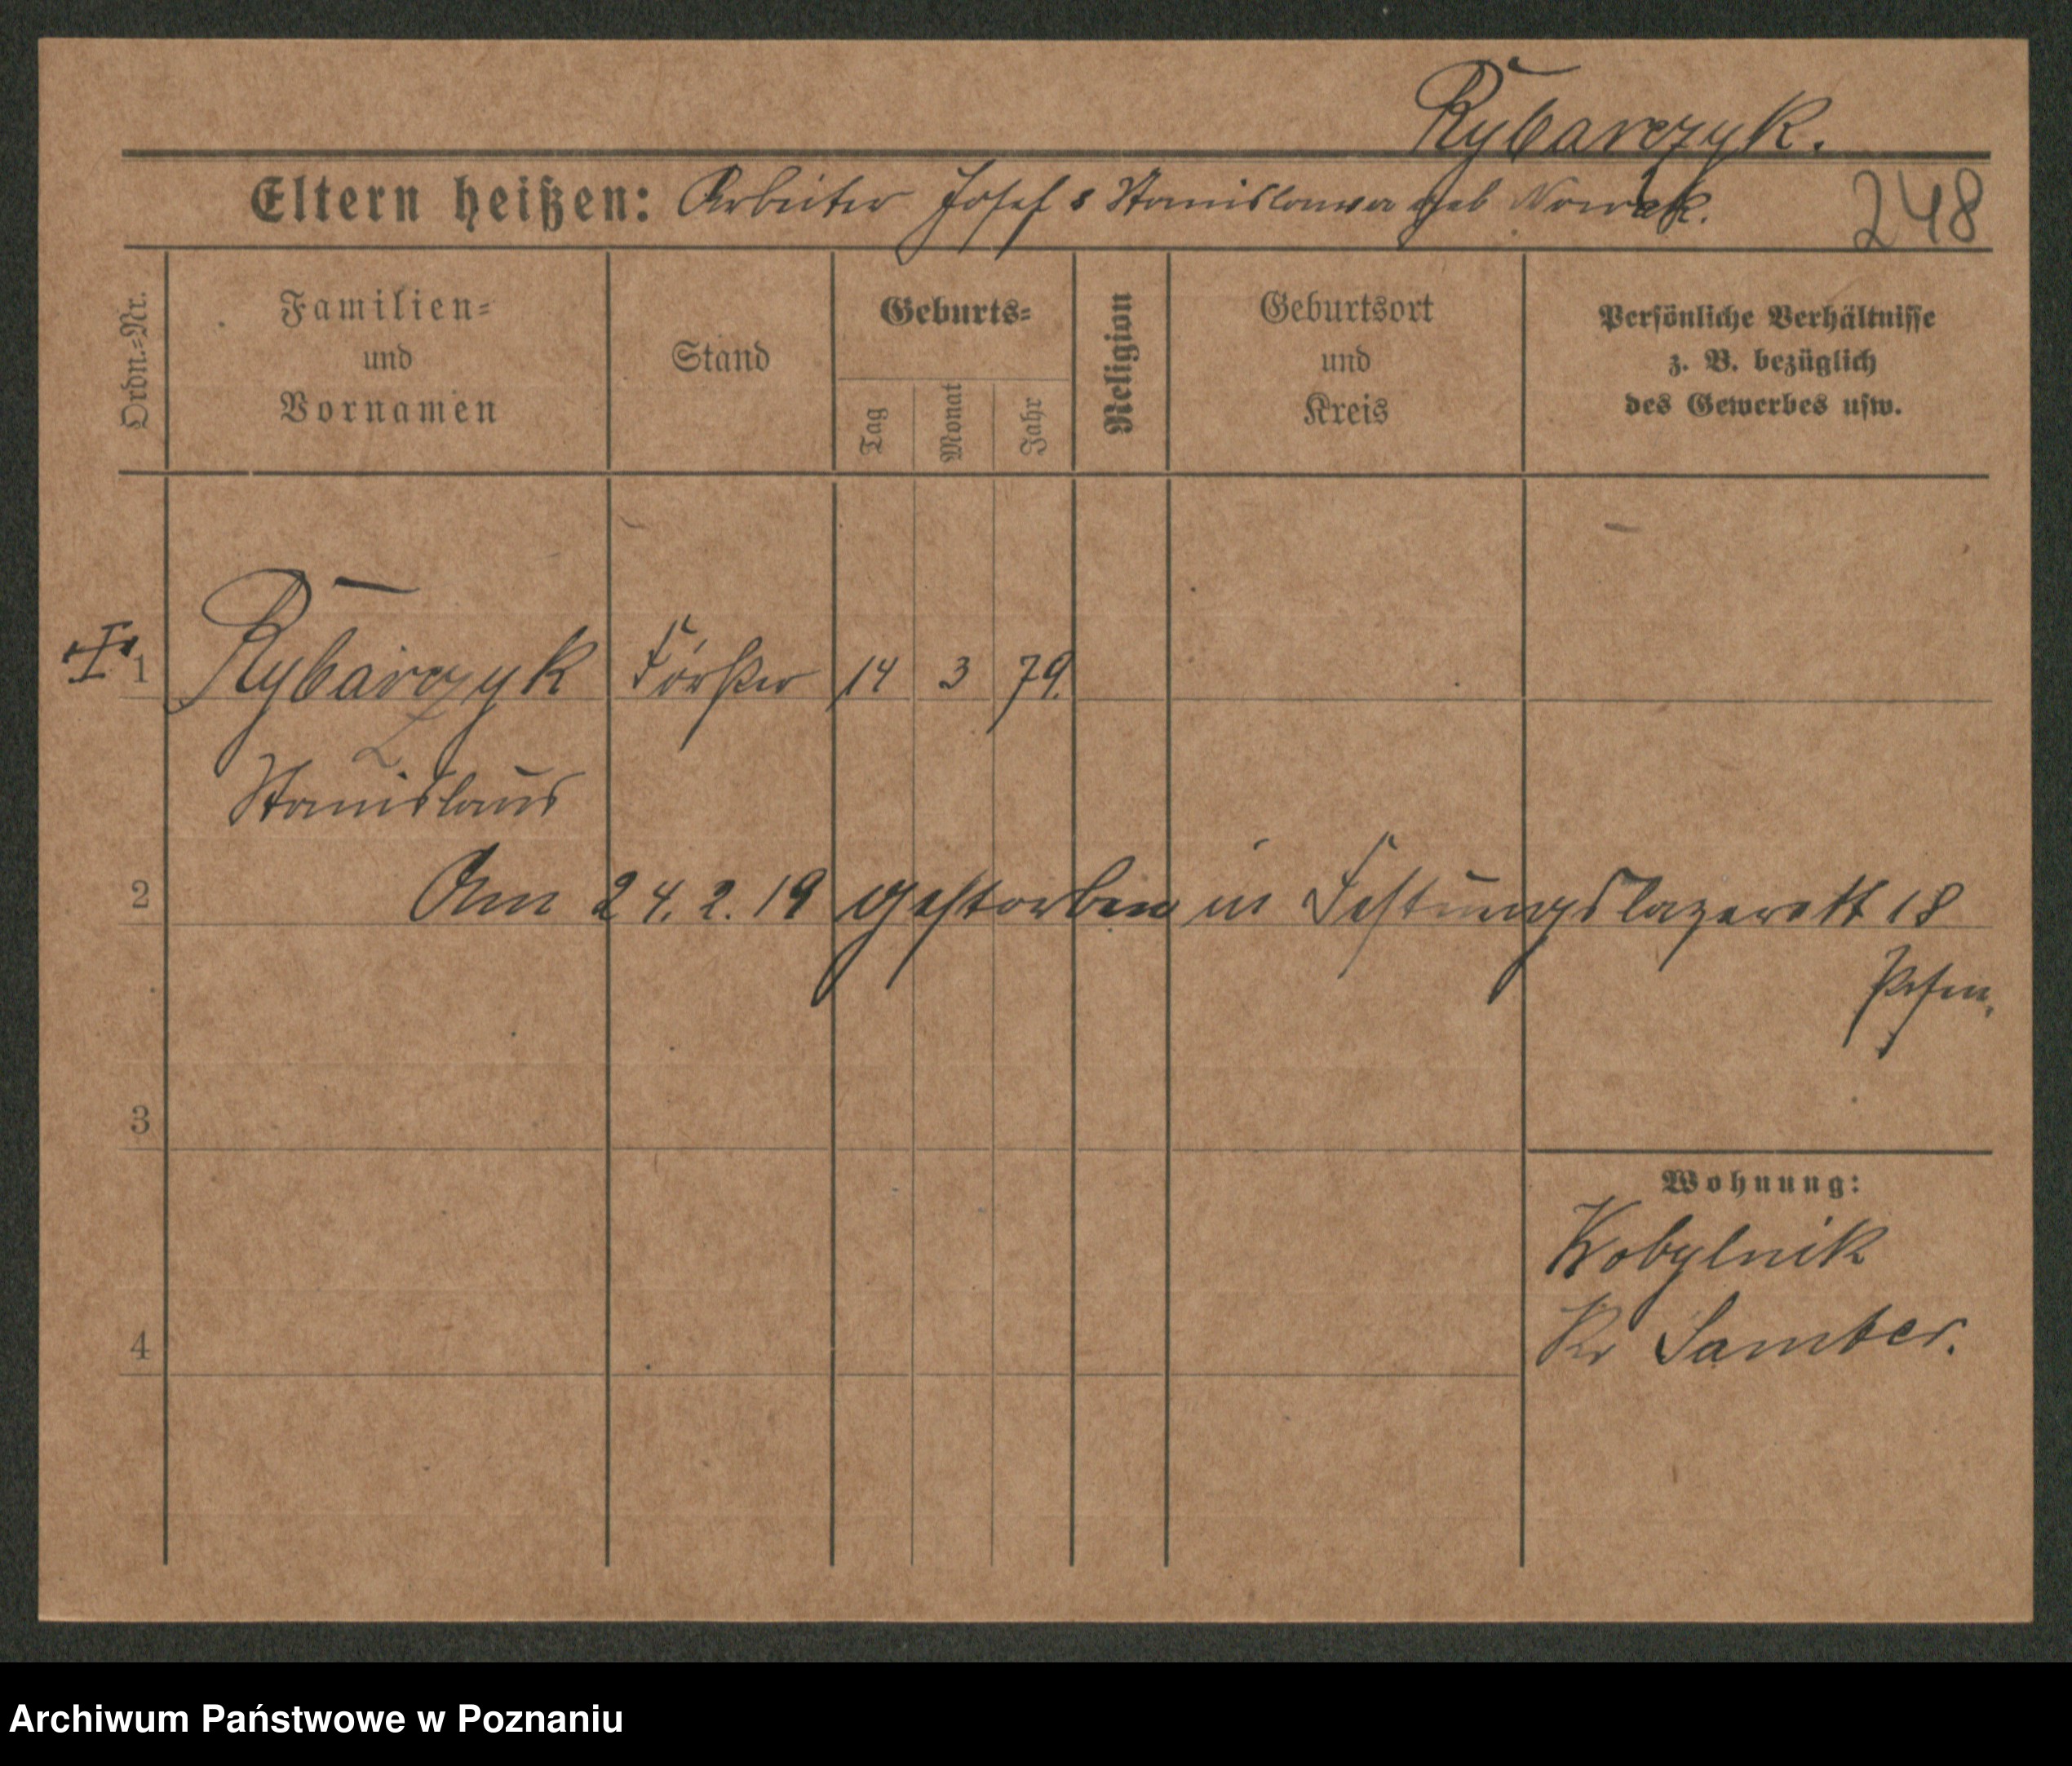 Rybarczyk.
Eltern heißen: Arbeiter Josef & Stanislawa geb Nowak.
248
Ordn.-Nr.
Familien-
und
Vornamen
Stand
Geburts-
Tag
Monat
Jahr
Religion
Geburtsort
und
Kreis
Persönliche Verhältnisse
z. B. bezüglich
des Gewerbes usw.
1 Rybarczyk Förster 14 3 79.
Stanislaus
2 Am 24.2.19 gestorben in Festungslazarett 18
Posen.
3
Wohnung:
Kobylnik
Kr Samter.
4
Archiwum Państwowe w Poznaniu